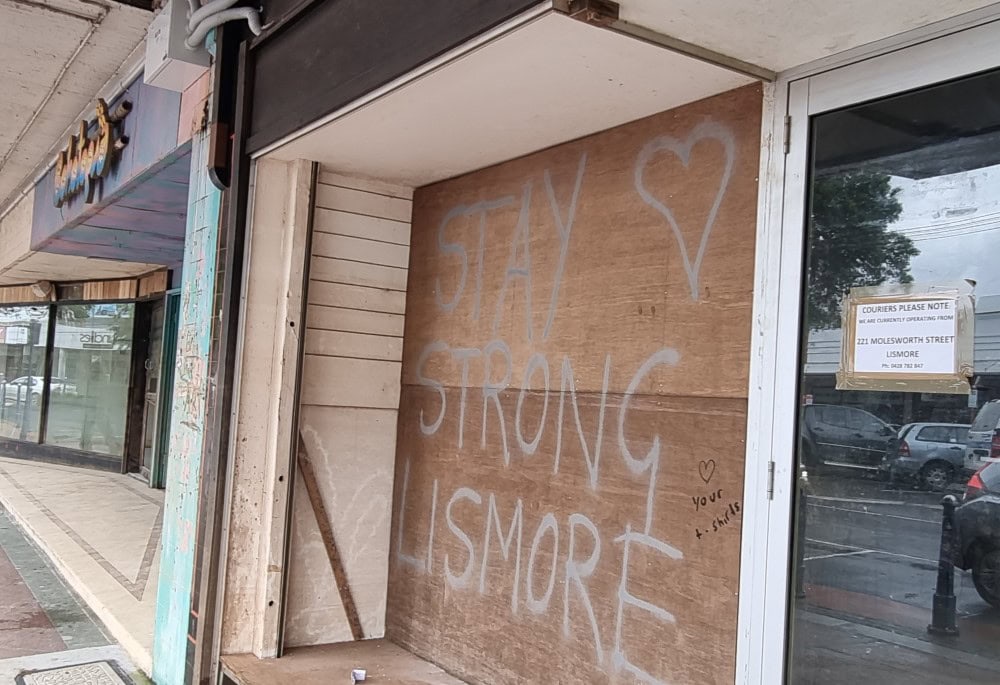 STAY
STRONG
LISMORE
your
t-shirts
COURIERS PLEASE NOTE:
WE ARE CURRENTLY OPERATING FROM
221 MOLESWORTH STREET
LISMORE
Ph: 0428 782 847